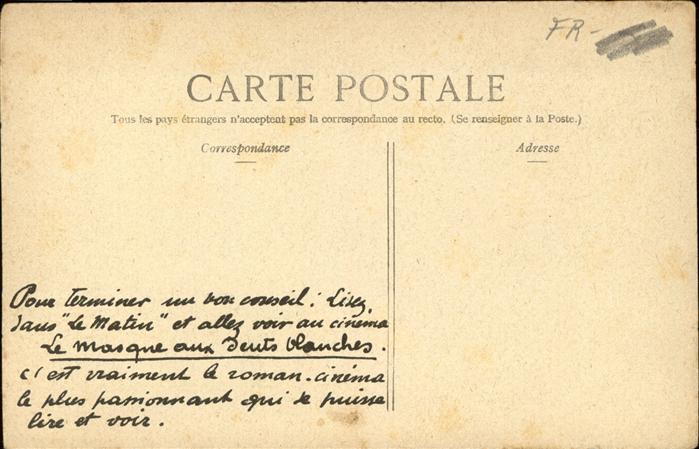 FR-
CARTE POSTALE
Tous les pays étrangers n'acceptent pas la correspondance au recto. (Se renseigner à la Poste.)
Correspondance
Adresse
Pour terminer un bon conseil : Lisez
dans "Le Matin" et allez voir au cinéma
Le Masque aux Dents blanches.
c'est vraiment le roman-cinéma
le plus passionnant qui se puisse
lire et voir.